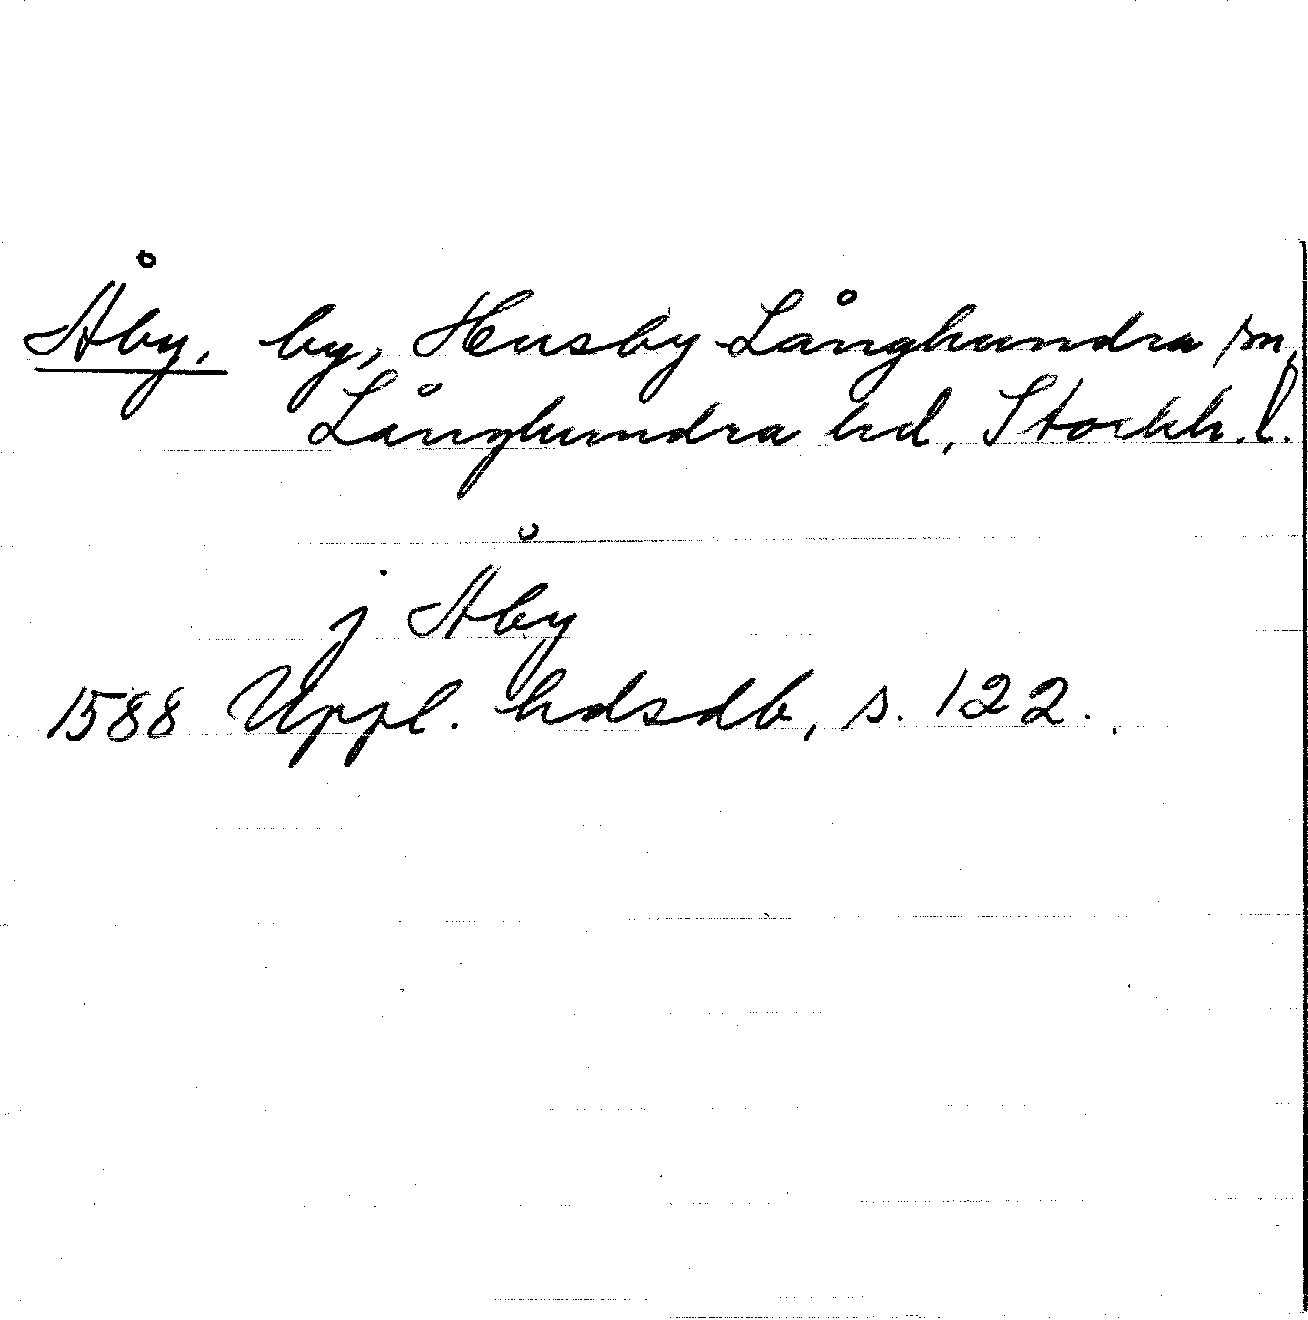 Åby, by, Husby-Långhundra sn,
Långhundra hd, Stockh. l.
j Åby
1588 Uppl. hdsdb, s. 122.